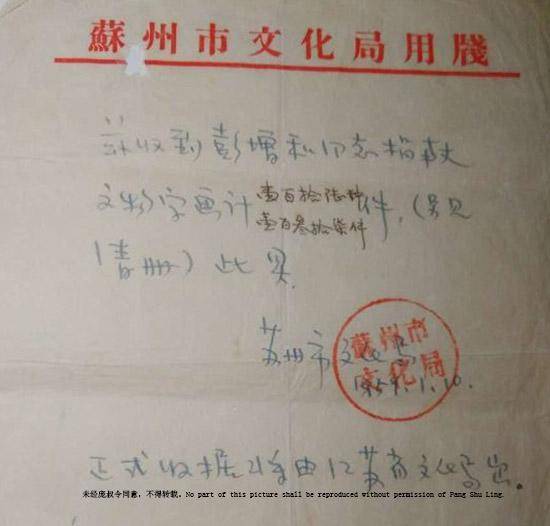 蘇州市文化局用牋
兹收到彭增和同志捐献
文物字画计壹百拾陆种
壹百叁拾柒件件，（另见
清册）此具.
苏州市文化局
蘇州市
文化局
1959.1.10.
正式收据将由江苏省文化局出。
未经庞叔令同意，不得转载。No part of this picture shall be reproduced without permission of Pang Shu Ling.